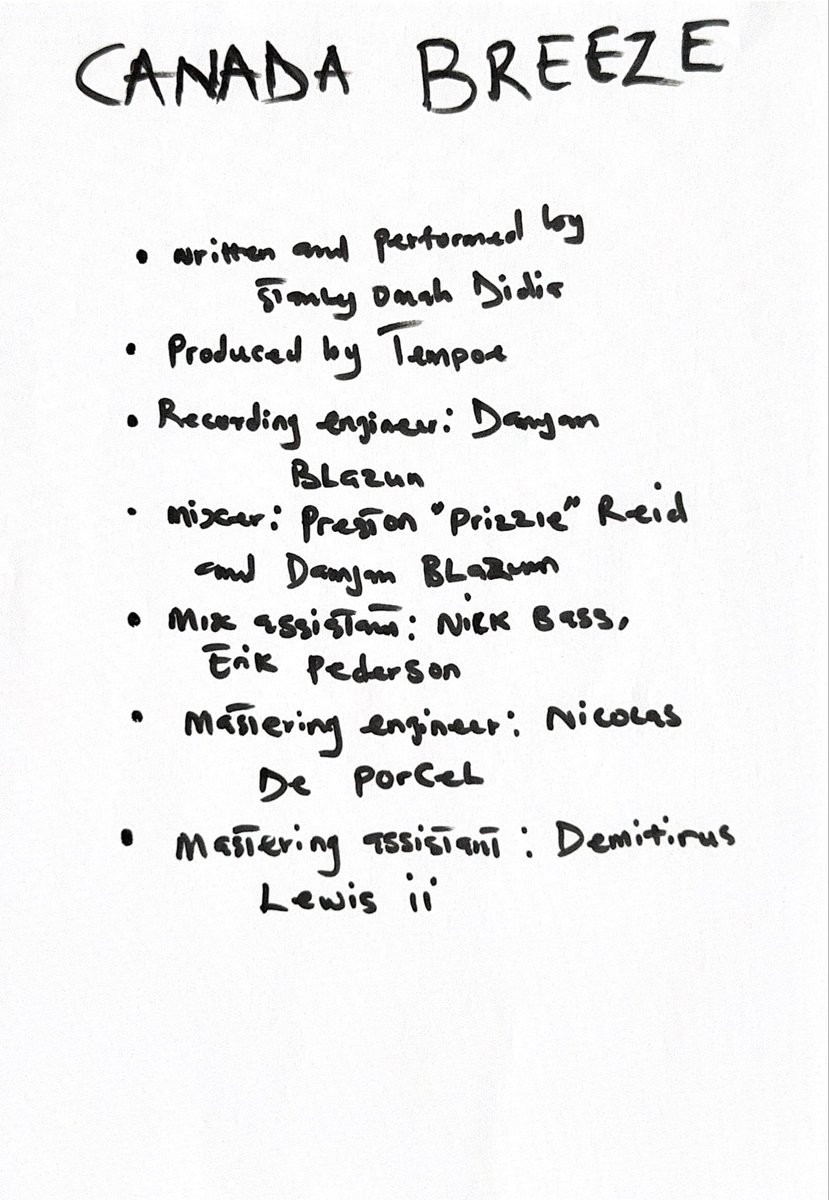 CANADA BREEZE
• written and performed by
Stanley Omah Didia
• Produced by Tempoe
• Recording engineer: Damjam
BLazun
• mixer: Preston "Prizzie" Reid
and Damjam BLazunn
• Mix assistant: Nick Bass,
Erik Pederson
• Mastering engineer: Nicolas
De PorceL
• Mastering assistant: Demitirus
Lewis ii